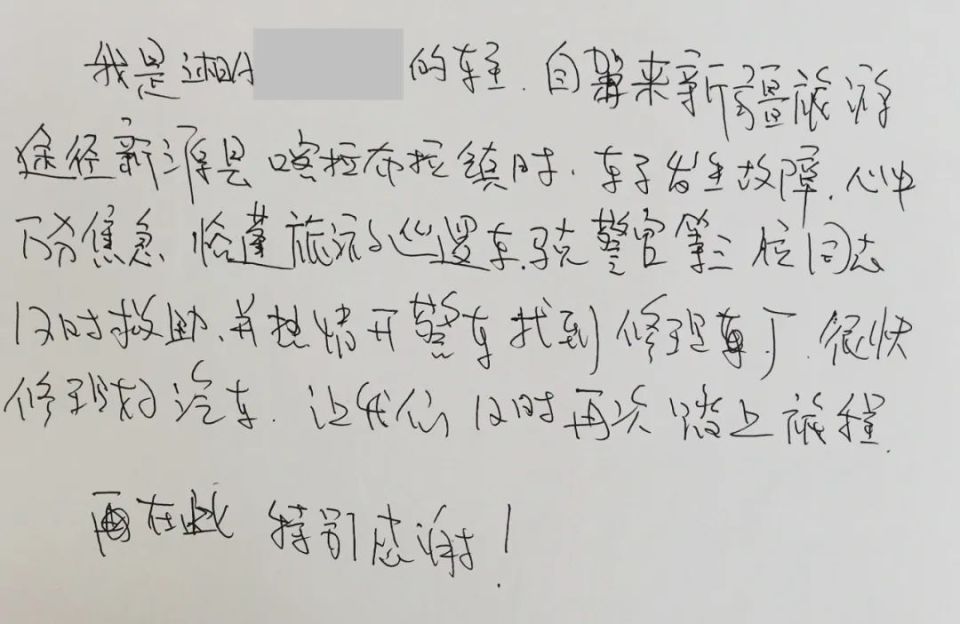 我是湘A 的车主.自驾来新疆旅游
途径新源县喀拉布拉镇时.车子发生故障.心中
万分焦急 恰逢旅游巡逻车. 警官等三位同志
及时救助.并热情开警车找到修理车厂.很快
修理好汽车.让我们及时再次踏上旅程.
再在此 特别感谢!